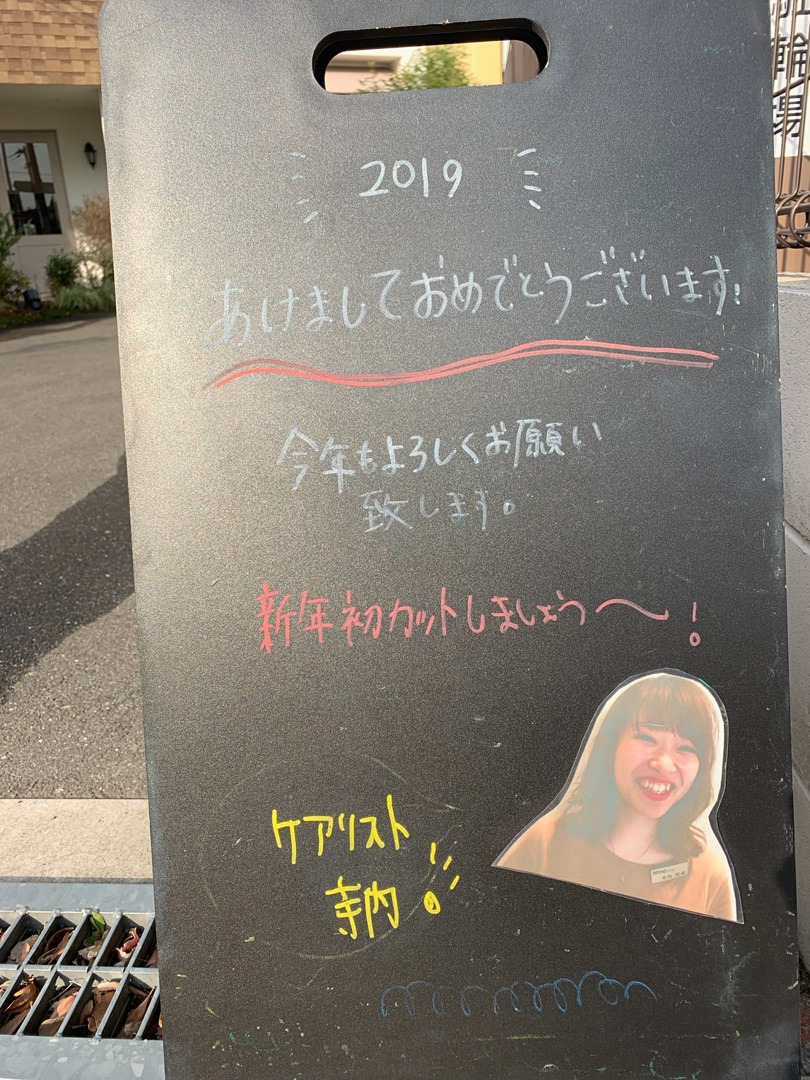 2019
あけましておめでとうございます!
今年もよろしくお願い
致します。
新年初カットしましょう〜!
ケアリスト
寺内!